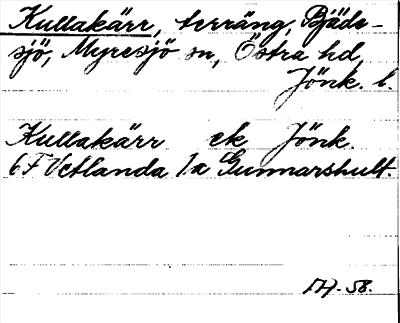 Kullakärr, terräng, Bjäde-
sjö, Myresjö sn, Östra hd,
Jönk. l.
Kullakärr ek Jönk.
6F Vetlanda 1a Gunnarshult.
58.